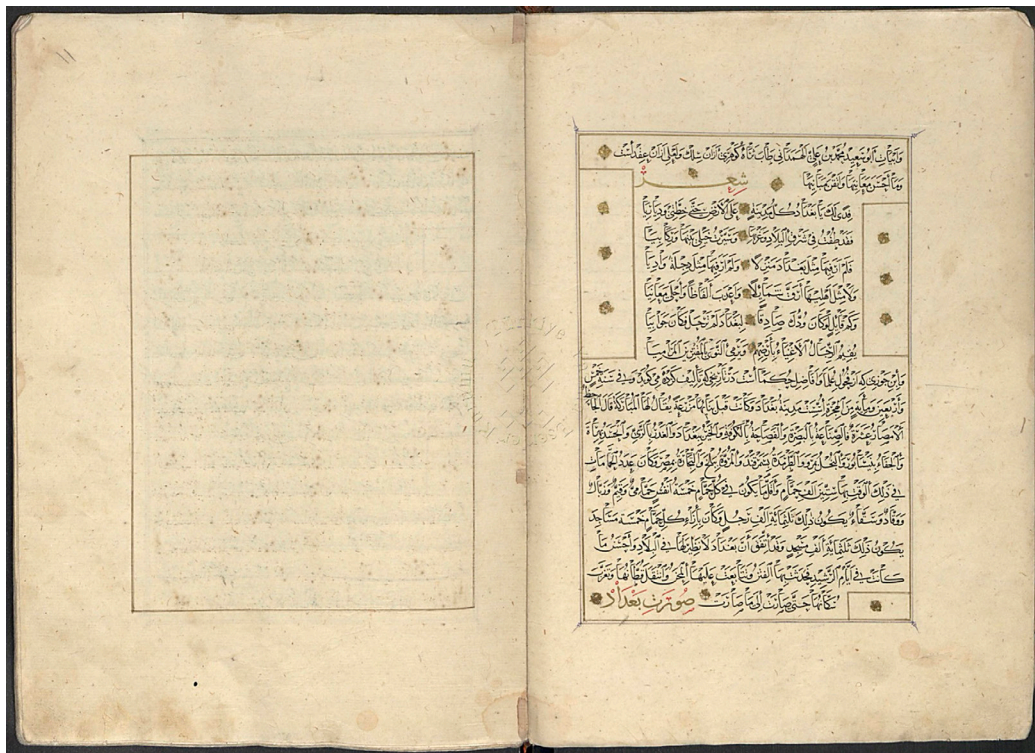 وابیات ابو سعید محمد بن علی الهمدانی طاب ثراه کوهری ازان سلک ولعلی ازان عقد است
وما احسن معانیها واتقن مبانیها شعر
فدى لك يا بغداد كل مدينة على الارض حتى خطتي ودياريا
فقد طفت في شرق البلاد وغربها وسيرت خيلي بينها وركابيا
فلم ار فيها مثل بغداد منزلا ولم ار فيها مثل دجلة واديا
ولا مثل اهليها ارق شمائلا واعذب الفاظا واحلى معانيا
وكم قائل لو كان ودك صادقا لبغداد لم ترحل وكان جوابيا
يقيم الرجال الاغنياء بارضهم وترمي النوى بالمقترين المراميا
وابن جوزی که از فحول علما وافاضل حکما است در تاریخی که تالیف کرده می کوید وفی سنة خمس
واربعين ومايه من الهجرة اسست مدينة بغداد وكانت قبل بنائها مزرعة يقال لها المباركة قال الجاحظ
الامصار عشرة فالصناعة بالبصرة والفصاحة بالكوفة والخير ببغداد والغدر بالري والحسد بهراة
والجفاء بنيسابور والبخل بمرو والطرمذة بسمرقند والمروة ببلخ والتجارة بمصر وكان عدة الحمامات
في ذلك الوقت بها ستين الف حمام واقل ما يكون في كل حمام خمسة انفس حمامي وقيم وزبال
ووقاد وسقاء يكون ذلك ثلثماية الف رجل وكان بازاء كل حمام خمسة مساجد
يكون ذلك ثلثماية الف مسجد وقد اتفق ان بغداد لا نظير لها في البلاد واحسن ما
كانت في ايام الرشيد فحدثت بها الفتن وتتابعت عليها المحن وانتقل قطانها وتغرب
سكانها حتى صارت الى ما صارت صورت بغداد